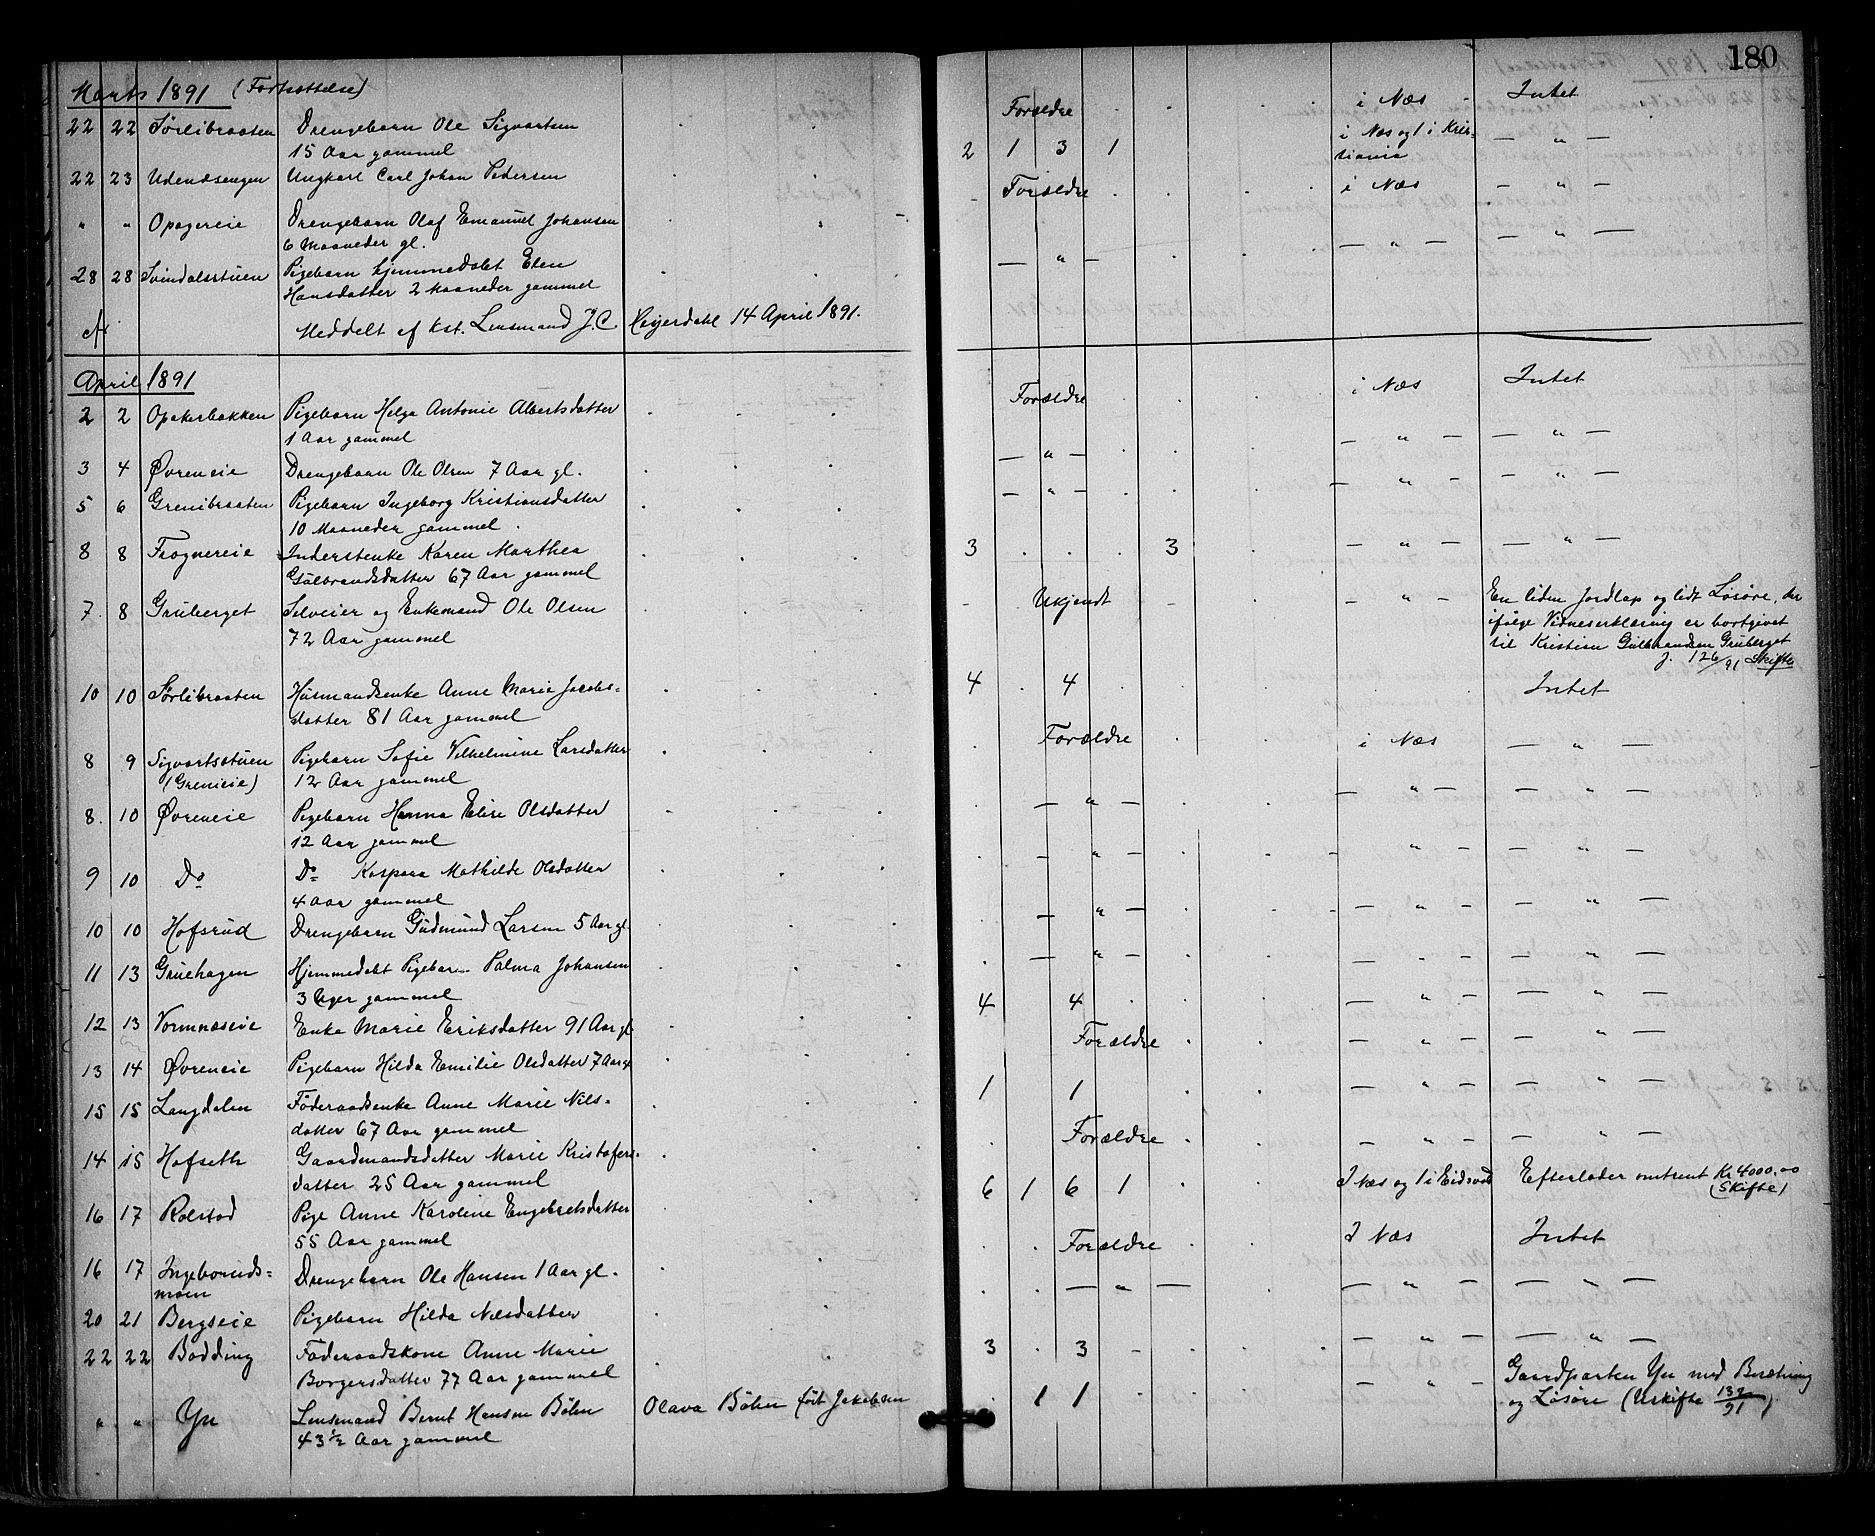 180
Marts 1891 (Fortsættelse)
22 22 Sørlibraaten Drengebarn Ole Sigvartsen
15 Aar gammel
22 23 Udenæsengen Ungkarl Carl Johan Pedersen
" " Opagereie Drengebarn Olaf Emanuel Johansen
6 Maaneder gl.
28 28 Svindalsstuen Pigebarn hjemmedøbt Elen
Hansdatter 2 Maaneder gammel
Meddelt af kst. Lensmand J.C. Heyerdahl 14 April 1891.
April 1891
2 2 Opakerbakken Pigebarn Helga Antonie Albertsdatter
1 Aar gammel
3 4 Øvreneie Drengebarn Ole Olsen 7 Aar gl.
5 6 Grenibraaten Pigebarn Ingeborg Kristiansdatter
10 Maaneder gammel
8 8 Frognereie Inderstenke Karen Marthea
Gulbrandsdatter 67 Aar gammel
7. 8 Gruberget Selveier og Enkemand Ole Olsen
72 Aar gammel
10 10 Sørlibraaten Husmandsenke Anne Marie Jacobs-
datter 81 Aar gammel
8 9 Sigvartsstuen Pigebarn Sofie Vilhelmine Larsdatter
(Grenieie) 12 Aar gammel
8. 10 Øvreneie Pigebarn Hanna Elise Olsdatter
12 Aar gammel
9 10 Do Do Kaspara Mathilde Olsdatter
4 Aar gammel
10 10 Hofsrud Drengebarn Gudmund Larsen 5 Aar gl.
11 13 Gruehagen Hjemmedøbt Pigebarn Palma Johansen
3 Uger gammel
12 13 Vormnæseie Enke Marie Eriksdatter 91 Aar gl.
13 14 Øvreneie Pigebarn Hilda Emilie Olsdatter 7 Aar gl
15 15 Langdalen Føderaadsenke Anne Marie Nils-
datter 67 Aar gammel
14 15 Hofseth Gaardmandsdatter Marie Kristofers-
datter 25 Aar gammel
16 17 Rolstad Pige Anne Karoline Engebretsdatter
55 Aar gammel
16 17 Ingeborruds-
moen Drengebarn Ole Hansen 1 Aar gl.
20 21 Bergseie Pigebarn Hilda Nilsdatter
22 22 Bodding Føderaadskone Anne Marie
Borgersdatter 77 Aar gammel
" " Yu Lensmand Bernt Hansen Bøhn Olava Bøhn født Jakobsen
43 1/2 Aar gammel
Forældre i Næs Intet
2 1 3 1 i Næs og 1 i Kris-
tiania — " —
Forældre i Næs — " —
— " — — " — — " —
Forældre i Næs Intet
— " — — " — — " —
— " — — " — — " —
3 3 — " — — " —
Ukjendt — " — En liden Jordlap og lidt Løsøre, der
ifølge Vidneserklæring er bortgivet
til Kristian Gulbrandsen Gruberget
J. 126/91 Skifte
4 4 Intet
Forældre i Næs — " —
— " — — " — — " —
— " — — " — — " —
— " — — " — — " —
— " — — " —
4 4 — " — — " —
Forældre — " — — " —
1 1 — " — — " —
Forældre — " — — " —
6 1 6 1 I Næs og 1 i Eidsvold Efterlader omtrent Kr 4000.00
(Skifte)
Forældre I Næs Intet
— " — — " — — " —
3 3 — " — — " —
1 1 — " — Gaardparten Yu med Besætning
og Løsøre (Uskifte 132/91)